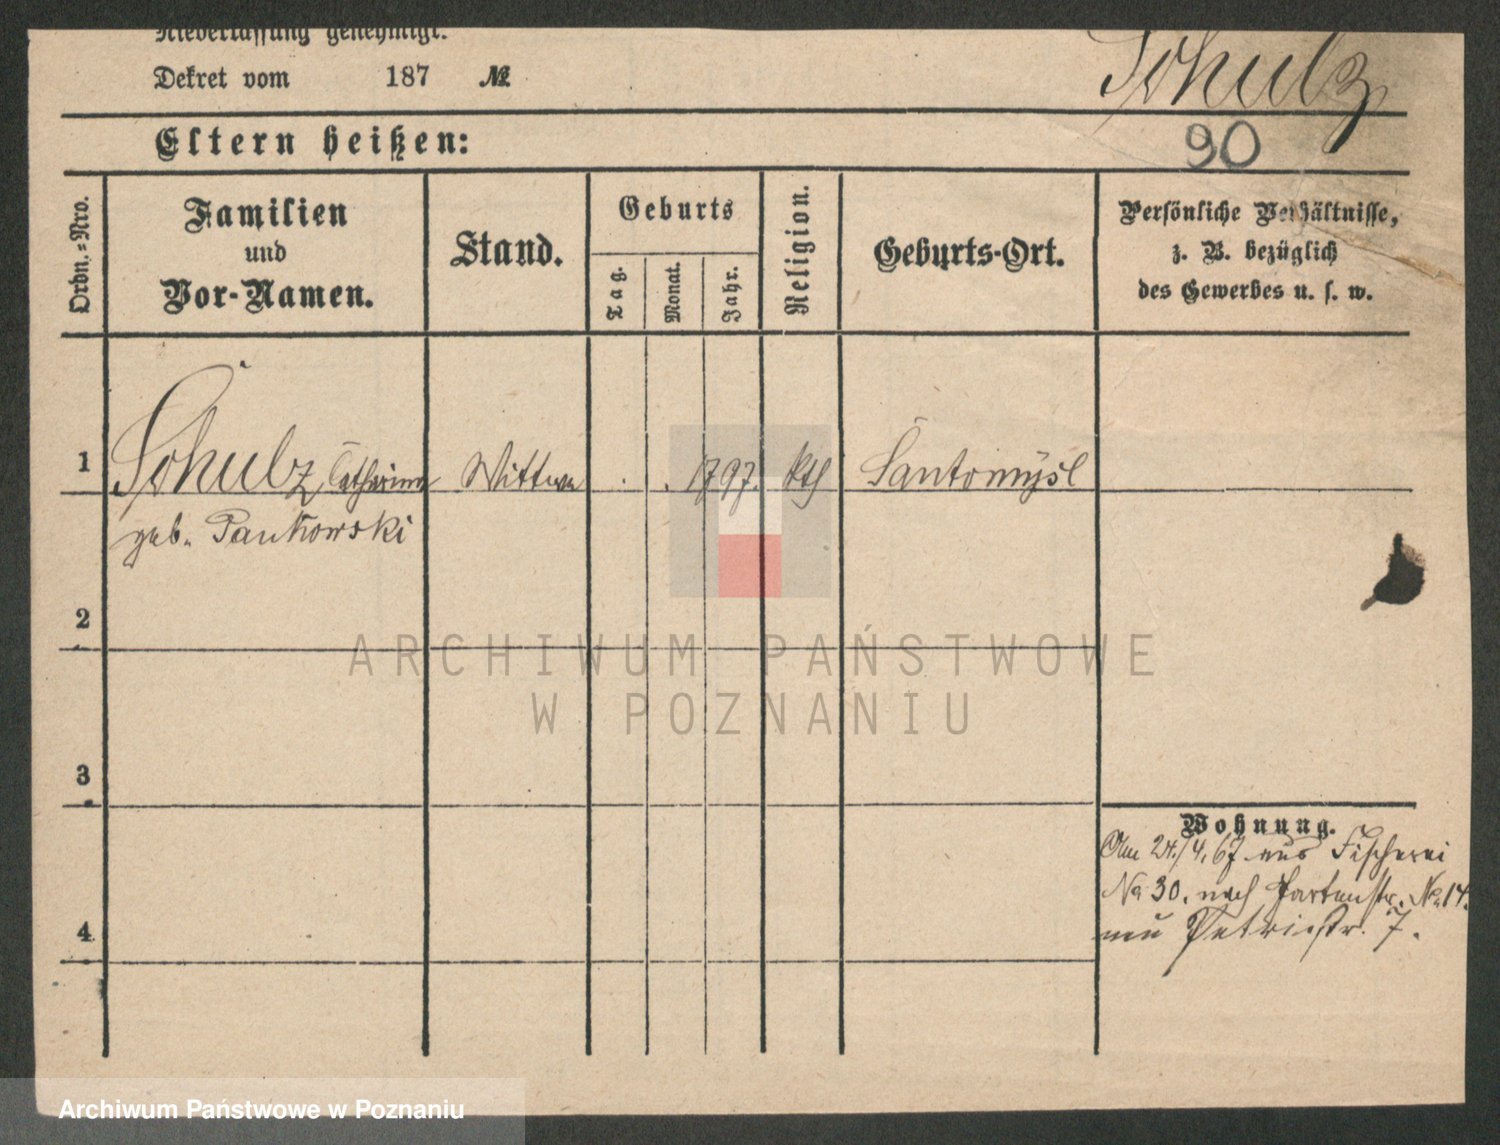 Niederlassung genehmigt.
Dekret vom 187 №
Schulz
90
Eltern heißen:
Ordn.-Nro.
Familien
und
Vor-Namen.
Stand.
Geburts
Tag.
Monat.
Jahr.
Religion.
Geburts-Ort.
Persönliche Verhältnisse,
z. B. bezüglich
des Gewerbes u. s. w.
1 Schulz, Catharina Wittwe . . 1797. kth Santomysl
geb. Pankowski
2
ARCHIWUM PAŃSTWOWE
W POZNANIU
3
Wohnung.
Am 24./4. 67 aus Fischerei
No 30. nach Gartenstr. No 14.
Petristr. 7.
4
Archiwum Państwowe w Poznaniu